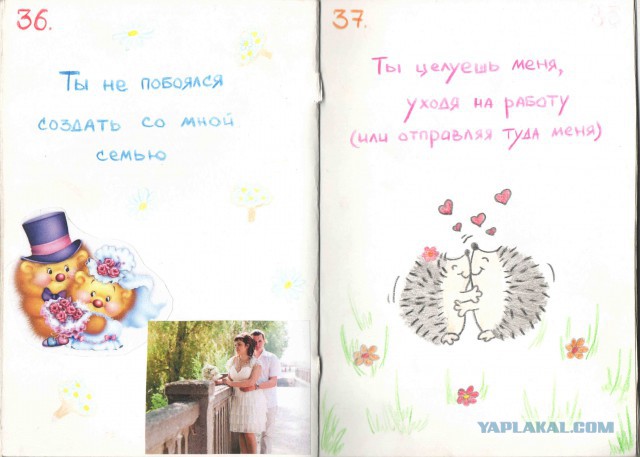 36.
Ты не побоялся
создать со мной
семью
37.
Ты целуешь меня,
уходя на работу
(или отправляя туда меня)
YAPLAKAL.COM